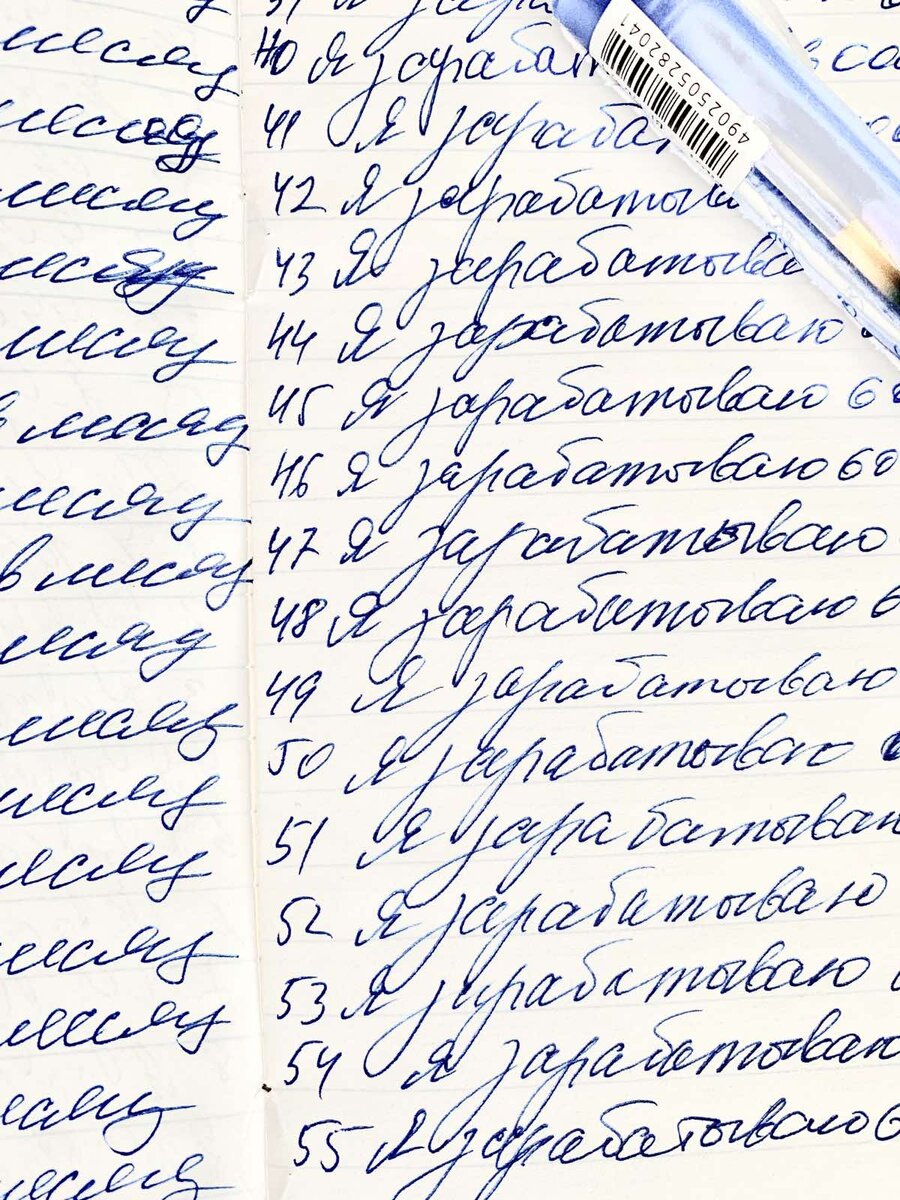 месяц
месяц
месяц
месяц
в месяц
месяц
в месяц
месяц
месяц
месяц
месяц
месяц
месяц
месяц
месяц
40 Я
41 Я
42 Я
43 Я
44 Я зарабатываю
45 Я зарабатываю
46 Я зарабатываю 60
47 Я зарабатываю
48 Я зарабатываю
49 Я зарабатываю
50 Я зарабатываю
51 Я зарабатываю
52 Я зарабатываю
53 Я зарабатываю
54 Я зарабатываю
55 Я зарабатываю
4902505282041